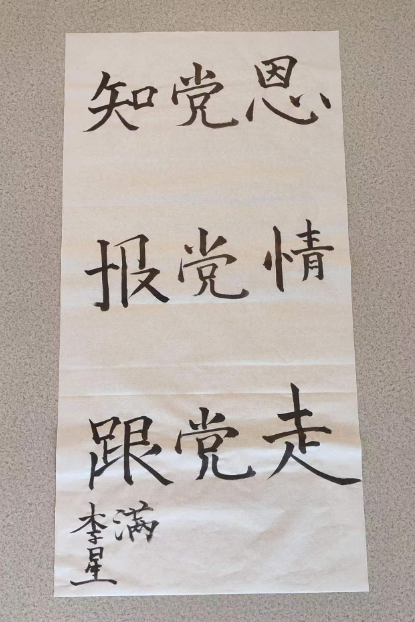 知党恩
报党情
跟党走
满
李星